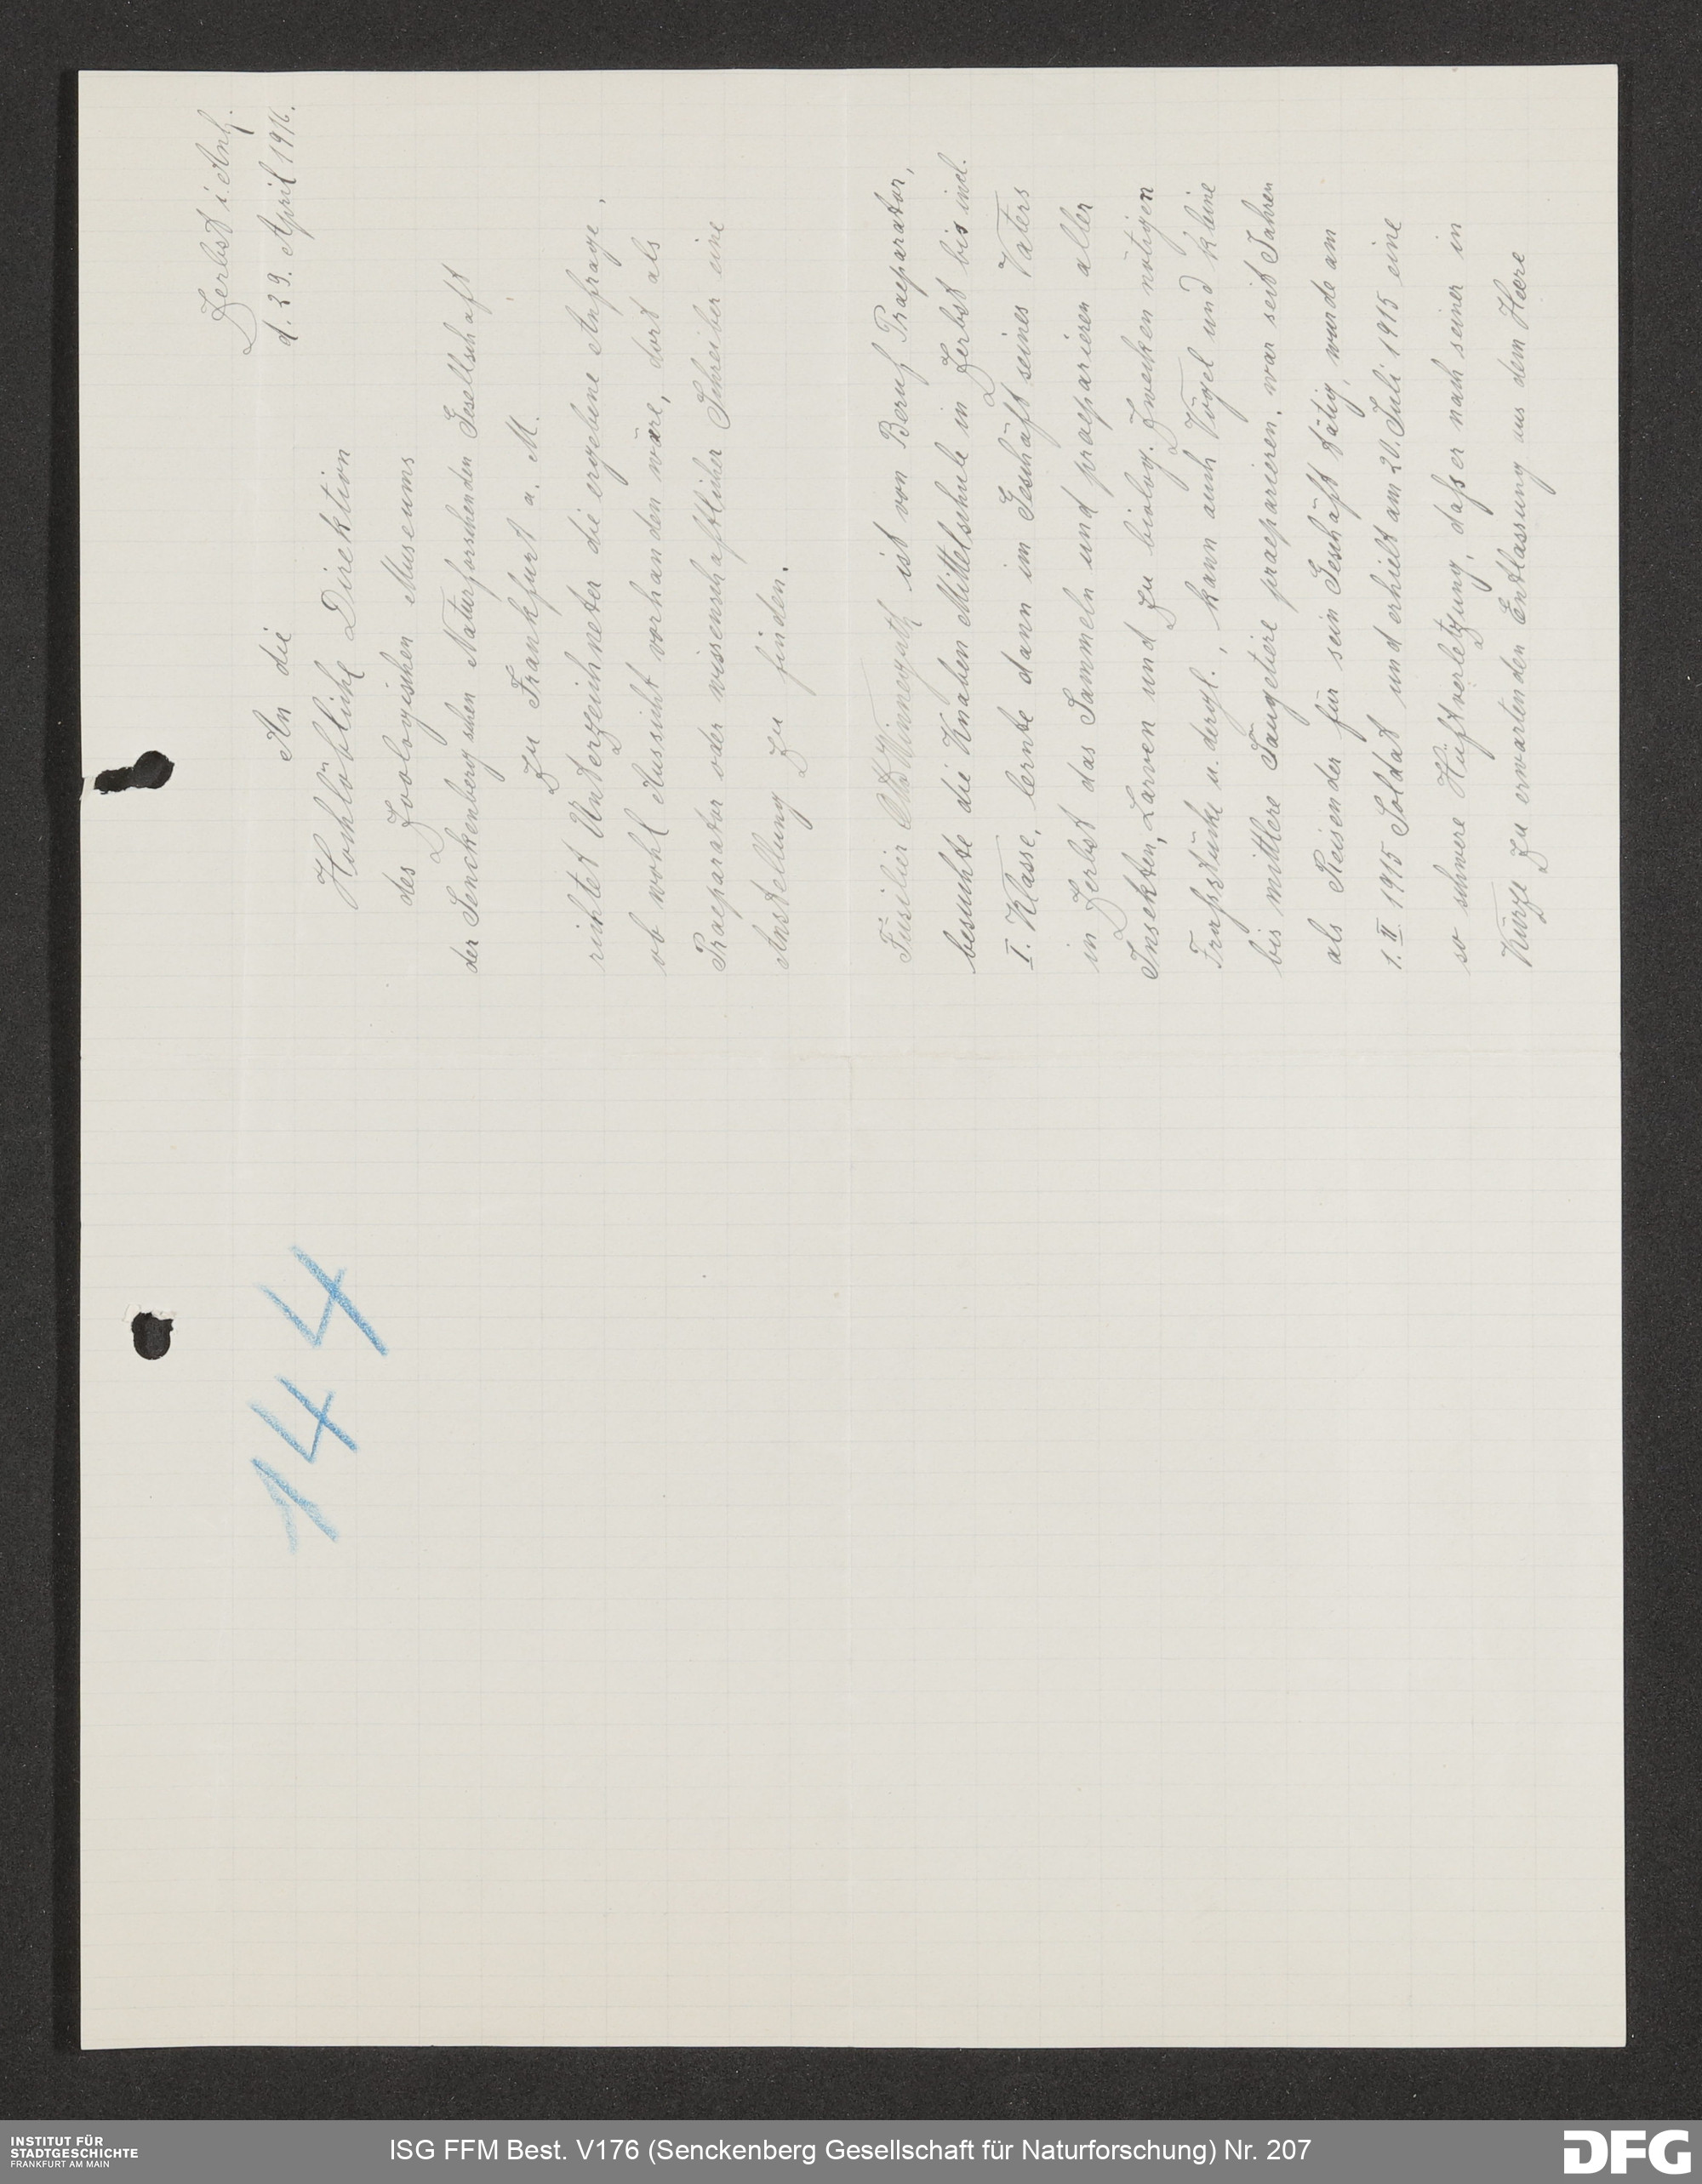 Zerbst i. Anh.
d. 29. April 1916.
An die
Hochlöbliche Direktion
des Zoologischen Museums
der Senckenbergschen Naturforschenden Gesellschaft
zu Frankfurt a. M.
richtet Unterzeichneter die ergebene Anfrage,
ob wohl Aussicht vorhanden wäre, dort als
Praeparator oder wissenschaftlicher Schreiber eine
Anstellung zu finden.
Füsilier Otto Winneguth ist von Beruf Praeparator,
besuchte die Knaben Mittelschule in Zerbst bis incl.
I. Klasse, lernte dann im Geschäft seines Vaters
in Zerbst das Sammeln und praeparieren aller
Insekten, Larven und zu biolog. Zwecken nötigen
Frassstücke u. dergl., kann auch Vögel und kleine
bis mittlere Säugetiere praeparieren, war seit Jahren
als Reisender für sein Geschäft tätig, wurde am
1. II 1915 Soldat und erhielt am 20. Juli 1915 eine
so schwere Hüftverletzung, dass er nach seiner in
Kürze zu erwartenden Entlassung aus dem Heere
144
INSTITUT FÜR
STADTGESCHICHTE
FRANKFURT AM MAIN
ISG FFM Best. V176 (Senckenberg Gesellschaft für Naturforschung) Nr. 207
DFG